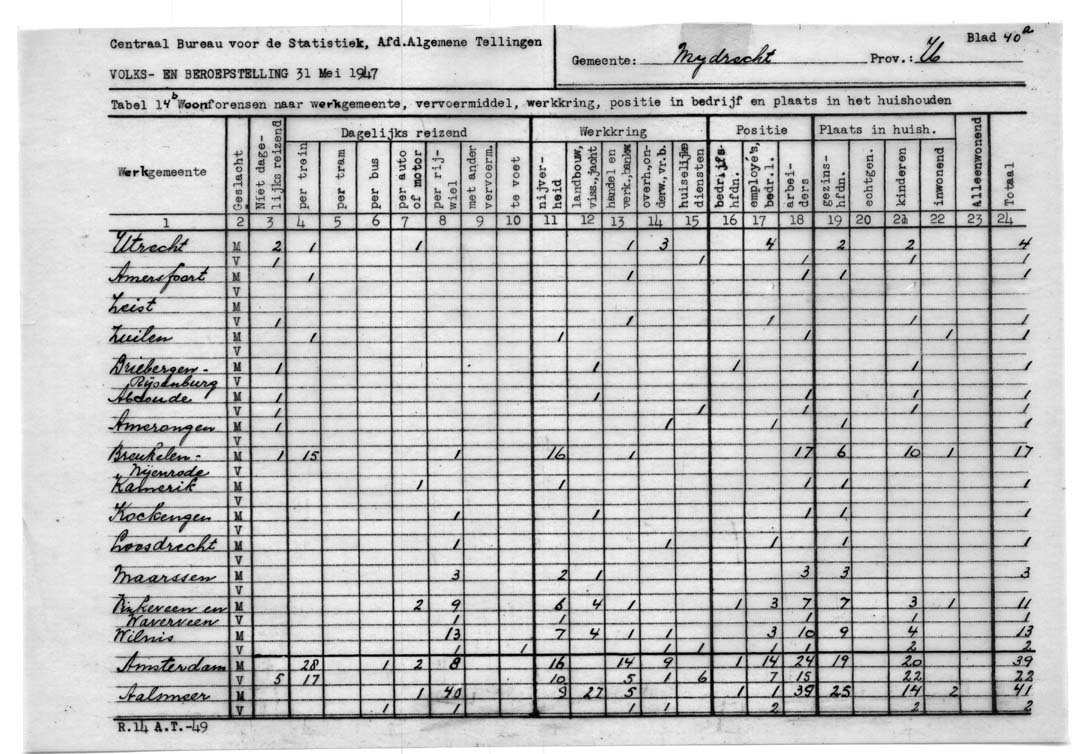 Centraal Bureau voor de Statistiek, Afd.Algemene Tellingen
VOLKS- EN BEROEPSTELLING 31 Mei 1947
Gemeente: Mydrecht Prov.: U Blad 40a
Tabel 14b Woonforensen naar werkgemeente, vervoermiddel, werkkring, positie in bedrijf en plaats in het huishouden
Werkgemeente Geslacht Niet dage-lijks reizend Dagelijks reizend Werkkring Positie Plaats in huish. Alleenwonend Totaal
per trein per tram per bus per auto of motor per rij-wiel met ander vervoerm. te voet nijver-heid landbouw, viss.,jacht handel en verk.,bankw overh.on-derw.,vr.b. huiselijke diensten bedrijfs-hfdn. employe's, bedr.l. arbei-ders gezins-hfdn. echtgen. kinderen inwonend
1 2 3 4 5 6 7 8 9 10 11 12 13 14 15 16 17 18 19 20 21 22 23 24
Utrecht M 2 1 1 1 3 4 2 2 4
V 1 1 1 1 1
Amersfoort M 1 1 1 1 1
V
Zeist M
V 1 1 1 1 1
Zuilen M 1 1 1 1 1
V
Driebergen- M 1 1 1 1 1
Rijsenburg V
Abcoude M 1 1 1 1 1
V 1 1 1 1 1
Amerongen M 1 1 1 1 1
V
Breukelen- M 1 15 1 16 1 17 6 10 1 17
Nijenrode V
Kamerik M 1 1 1 1 1
V
Kockengen M 1 1 1 1 1
V
Loosdrecht M 1 1 1 1 1
V
Maarssen M 3 2 1 3 3 3
V
Vinkeveen en M 2 9 6 4 1 1 3 7 7 3 1 11
Waverveen V 1 1 1 1 1
Wilnis M 13 7 4 1 1 3 10 9 4 13
V 1 1 1 1 1 1 2 2
Amsterdam M 28 1 2 8 16 14 9 1 14 24 19 20 39
V 5 17 10 5 1 6 7 15 22 22
Aalsmeer M 1 40 9 27 5 1 1 39 25 14 2 41
V 1 1 1 1 2 2 2
R.14 A.T.-49